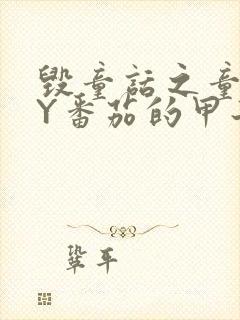 毁童话之童
Y番茄的甲
巩平